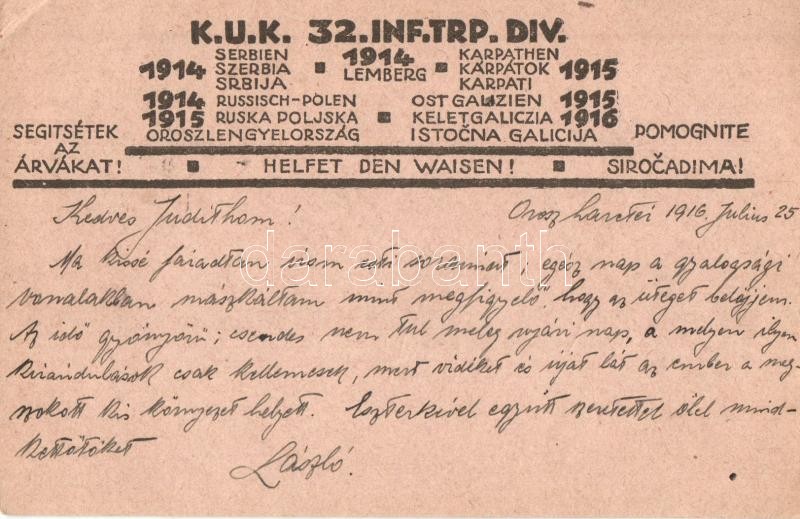 K.U.K. 32.INF.TRP. DIV.
1914 SERBIEN SZERBIA SRBIJA ▪ 1914 LEMBERG ▪ KARPATHEN KÁRPÁTOK KARPATI 1915
1914 1915 RUSSISCH-POLEN RUSKA POLJSKA OROSZLENGYELORSZÁG ▪ OSTGALIZIEN KELETGALICZIA ISTOČNA GALICIJA 1915 1916
SEGITSÉTEK AZ ÁRVÁKAT! ▪ HELFET DEN WAISEN! ▪ POMOGNITE SIROČADIMA!
Kedves Judithom! Orosz harctér 1916. Julius 25
Ma kissé fáradtan irom esti soraimat, egész nap a gyalogsági
vonalakban mászkáltam mint megfigyelő, hogy az üteget belőjjem.
Az idő gyönyörű; csendes nem tul meleg nyári nap, a melyen ilyen
kirándulások csak kellemesek, mert vidéket és ujat lát az ember a meg-
szokott kis környezet helyett. Eszterkével együtt szeretettel ölel mind-
kettőtöket
László.
darabanth